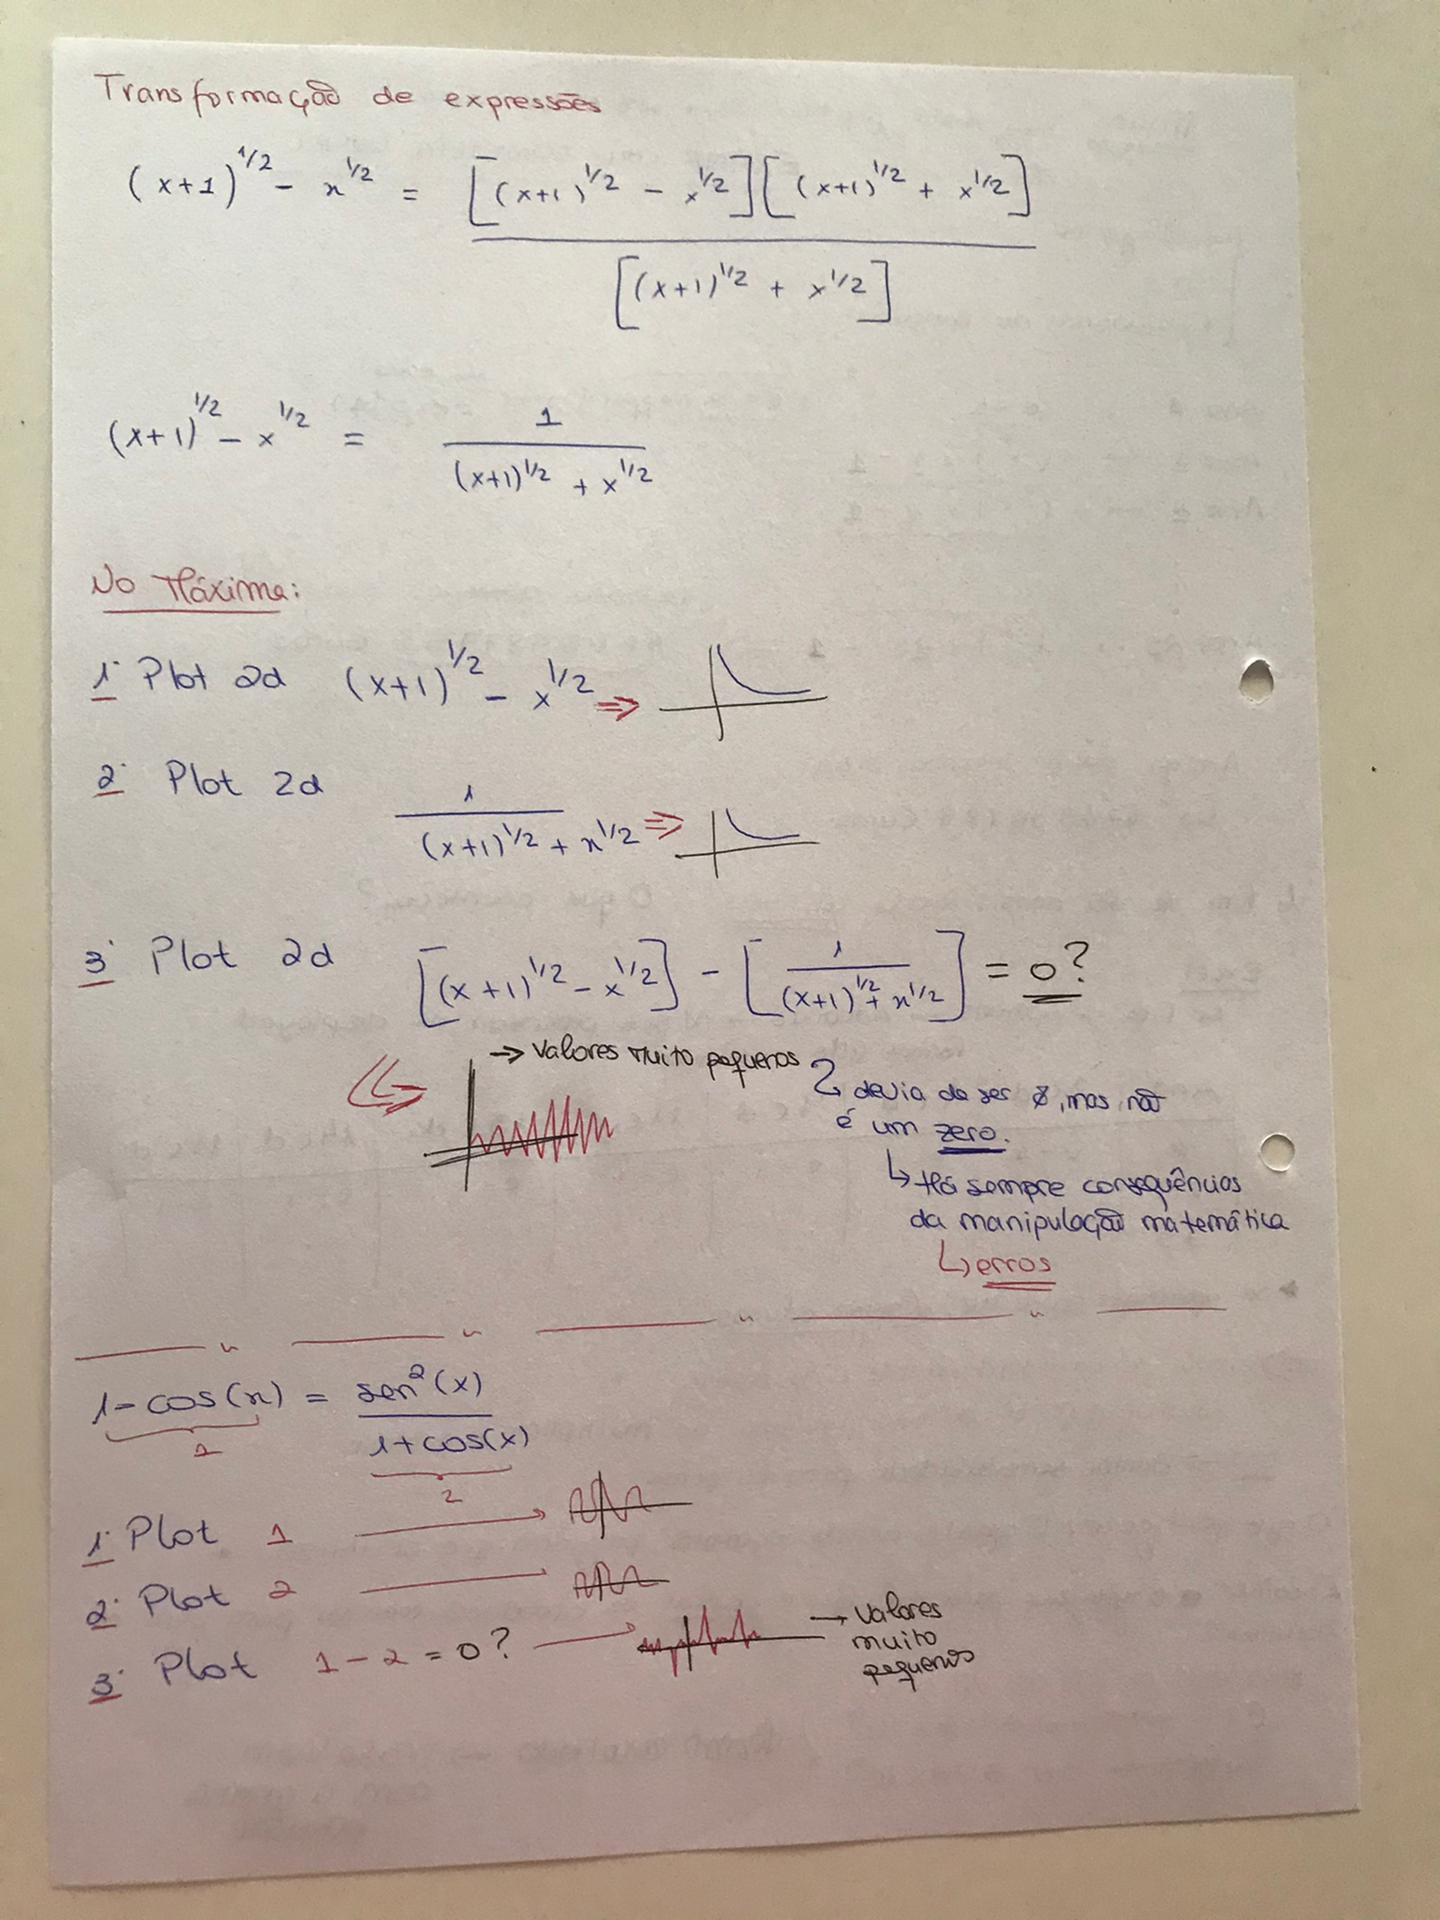 Transformação de expressões
(x+1)^1/2 - x^1/2 = [(x+1)^1/2 - x^1/2][(x+1)^1/2 + x^1/2] / [(x+1)^1/2 + x^1/2]
(x+1)^1/2 - x^1/2 = 1 / (x+1)^1/2 + x^1/2
No Máxima:
1. Plot 2d (x+1)^1/2 - x^1/2 ⇒
2. Plot 2d 1 / (x+1)^1/2 + x^1/2 ⇒
3. Plot 2d [(x+1)^1/2 - x^1/2] - [1 / (x+1)^1/2 + x^1/2] = 0?
→ Valores muito pequenos
↳ devia de ser 0, mas não
é um zero.
↳ Há sempre consequências
da manipulação matemática
↳ erros
1-cos(x) = sen²(x) / 1+cos(x)
1
2
1. Plot 1 →
2. Plot 2
3. Plot 1-2=0? → → Valores
muito
pequenos